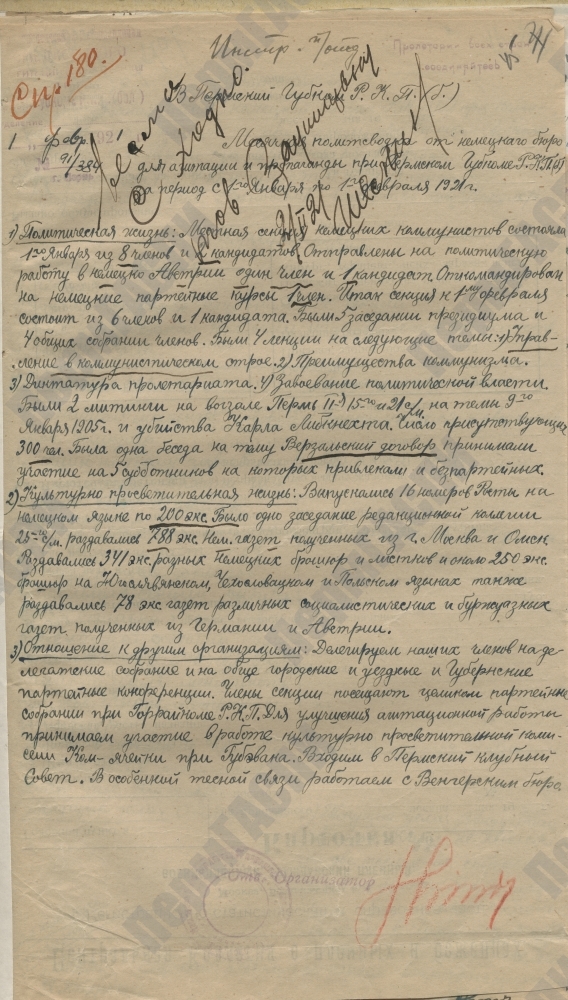 Стр. 180.
Инстр.
Пролетарии всех стран
соединяйтесь
В Пермский Губком Р.К.П. (б.)
1 февр. 1
91/384
Месячные политсводка от немецкого бюро
для агитации и пропаганды при Пермском Губкоме Р.К.П.(б)
за период с 1го Января по 1го февраля 1921 г.
21/II 21
1) Политическая жизнь: Местная секция немецких коммунистов состояла
1го Января из 8 членов и кандидатов. Отправлены на политическую
работу в немецко Австрии один член и 1 кандидат. Откомандирован
на немецкие партейные курсы 1 член. Итак секция к 1му февраля
состоит из 6 членов и 1 кандидата. Были 5 заседании президиума и
4 общих собрании членов. Были 4 лекции на следующие темы: 1) Управ-
ление в коммунистическом строе. 2) Преимущества коммунизма.
3) Диктатура пролетариата. 4) Завоевание политической власти.
Были 2 митинги на вокзале Пермь II 15го и 21 с/м. на темы 9го
Января 1905 г. и убийства Карла Либкнехта. Число присутствующих
300 чел. Была одна беседа на тему Версальский договор принимали
участие на 5 субботников на которых привлекали и безпартейных.
2) Культурно просветительная жизнь: Выпускались 16 номеров Росты на
немецком языке по 200 экс. Было одно заседание редакционной коллегии
25-го с/м. раздавались 788 экс. Нем. газет полученных из г. Москва и Омск
Раздавались 341 экс. разных Немецких брошюр и листков и около 250 экс.
брошюр на Югославянском, Чехословацком и Польском языках также
раздавались 78 экс газет различных социалистических и буржуазных
газет полученных из Германии и Австрии.
3) Отношение к другим организациям: Делегируем наших членов на де-
легатские собрание и на обще городские и уездные и Губернские
партейные конференции. Члены секции посещают целиком партейные
собрании при Горрайкоме Р.К.П. Для улучшения агитационной работы
принимаем участие в работе культурно просветительной коми-
сии Ком-ячейки при Губэвака. Входим в Пермский клубный
Совет. В особенной тесной связи работаем с Венгерским бюро.
Отв. Организатор